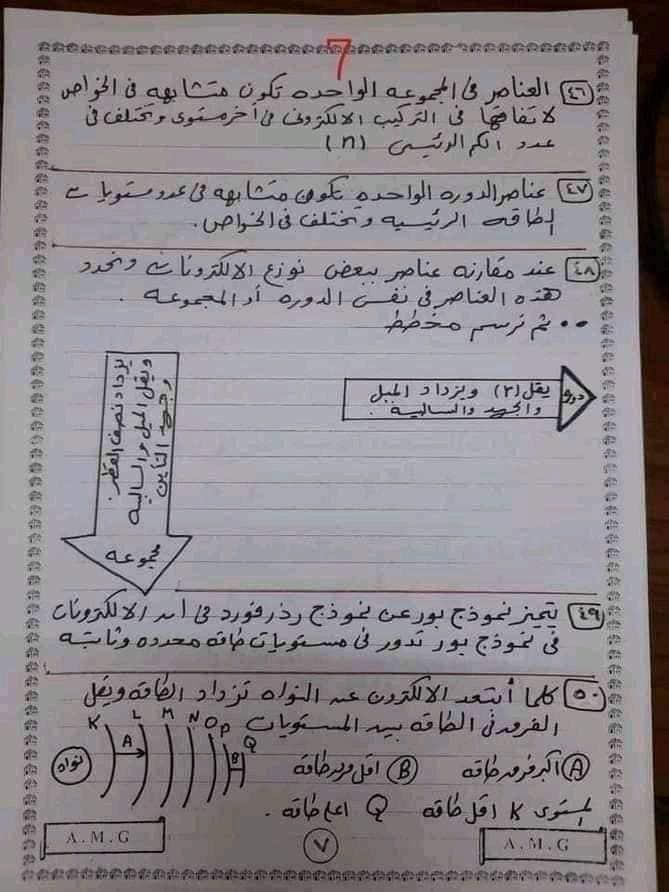 7
٤٦ العناصر فى المجموعه الواحده تكون متشابهه فى الخواص
لاتفاقها فى التركيب الالكترونى فى أخر مستوى وتختلف فى
عدد الكم الرئيسى (n)
٤٧ عناصر الدوره الواحده تكون متشابهه فى عدد مستويات
الطاقه الرئيسيه وتختلف فى الخواص.
٤٨ عند مقارنه عناصر ببعض نوزع الالكترونات ونحدد
هذه العناصر فى نفس الدوره أو المجموعه.
ثم نرسم مخطط
يقل (٢) ويزداد الميل
والجهد والسالبيه.
دوره
يزداد نصف القطر.
ويقل الميل والسالبيه
وجهد التأين
مجموعه
٤٩ يتميز نموذج بور عن نموذج رذرفورد فى أن الالكترونات
فى نموذج بور تدور فى مستويات طاقه محدده وثابته
٥٠ كلما أبتعد الالكترون عن النواه تزداد الطاقه ويقل
الفرق فى الطاقه بين المستويات
K L M N O P Q
نواه
A
B
A أكبر فرق طاقه B اقل فرق طاقه
المستوى K اقل طاقه Q اعلى طاقه.
A.M.G
٧
A.M.G